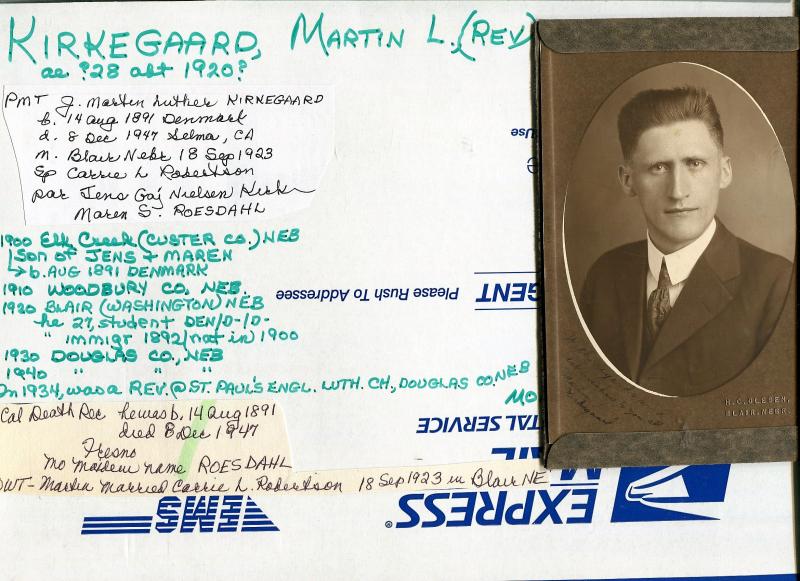 KIRKEGAARD, MARTIN L. (REV)
ae ?28 abt 1920?
PMT J. Martin Luther KIRKEGAARD
b. 14 Aug 1891 Denmark
d. 8 Dec 1947 Selma, CA
m. Blair Nebr 18 Sep 1923
Sp Carrie L Robertson
par Jens Gaj Nielsen Kirk
Maren S. ROESDAHL
1900 Elk Creek (CUSTER CO.) NEB
Son of JENS + MAREN
→ b. AUG 1891 DENMARK
1910 WOODBURY CO, NEB.
1920 BLAIR (WASHINGTON) NEB
he 27, student DEN/D-/D-
" immigr 1892/not in 1900
1930 DOUGLAS CO., NEB
1940 " " "
In 1934, was a REV. @ ST. PAUL'S ENGL. LUTH. CH., DOUGLAS CO. NEB
Cal Death Rec he was b. 14 Aug 1891
died 8 Dec 1947
Fresno
Mo maiden name ROESDAHL
OWT- Martin married Carrie L. Robertson 18 Sep 1923 in Blair NE
use
Please Rush To Addressee
GENT
MO
TAL SERVICE
AIL
EXPRESS
M
EMS
H.C. OLESEN,
BLAIR, NEBR.